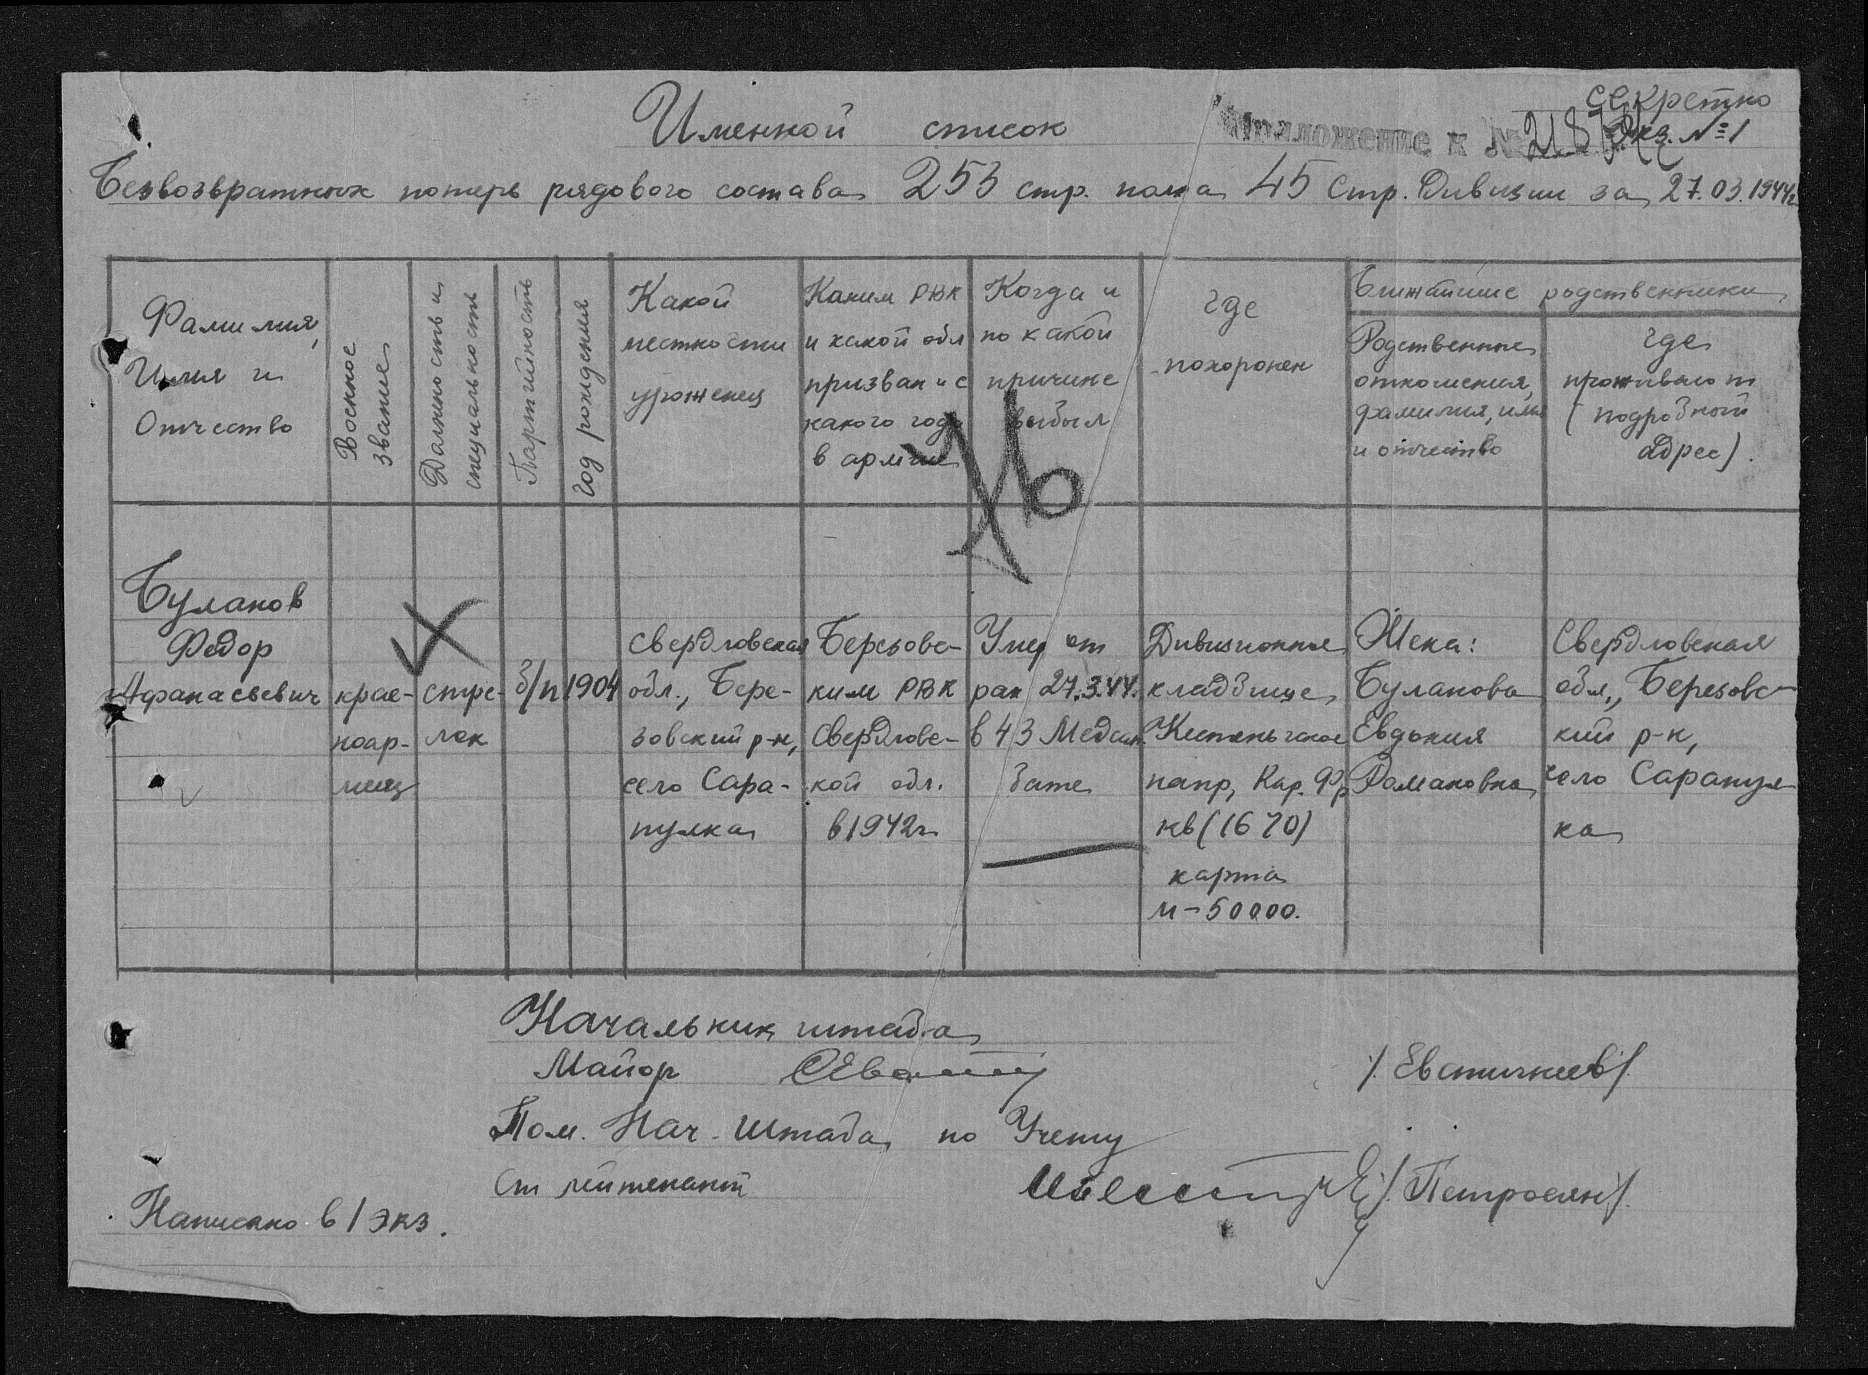 Секретно
Экз. №1
Приложение к №
Именной список
Безвозвратных потерь рядового состава 253 стр. полка 45 Стр. Дивизии за 27.03.1944г
Фамилия,
Имя и
Отчество
Военное
звание
Должность и
специальность
Партийность
год рождения
Какой
местности
уроженец
Каким РВК
и какой обл
призван и с
какого года
в армии
Когда и
по какой
причине
выбыл
где
похоронен
Ближайшие родственники
Родственные
отношения,
фамилия, имя
и отчество
где
проживают
(подробный
адрес).
Буланов
Федор
Афанасьевич
крас-
ноар-
меец
стре-
лок
б/п
1904
Свердловская
обл., Бере-
зовский р-н,
село Сара-
пулка
Березовс-
ким РВК
Свердловс-
кой обл.
в 1942г
Умер от
ран 27.3.44.
в 43 Медсан
бате
Дивизионное
кладбище,
Кестеньгское
напр, Кар. Фр
кв (1670)
карта
м-50000.
Жена:
Буланова
Евдокия
Романовна
Свердловская
обл., Березовс-
кий р-н,
село Сарапул-
ка
Начальник штаба
Майор /. Евстигнеев/.
Пом. Нач. Штаба по Учету
Ст лейтенант /. Петросян/.
Написано в 1 экз.